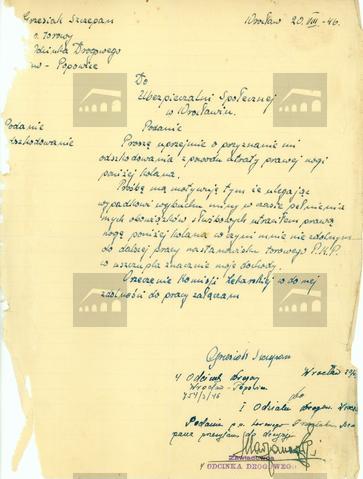 Grzesiak Szczepan Wrocław 20.VIII.-46.
r. torowy
Odcinka Drogowego
Popowice
Do
Ubezpieczalni Społecznej
w Wrocławiu.
Podanie Podanie
odszkodowanie
Proszę uprzejmie o przyznanie mi
odszkodowania z powodu utraty prawej nogi
poniżej kolana.
Prośbę mą motywuję tym że ulegając
wypadkowi wybuchu miny w czasie pełnienia
mych obowiązków służbowych utraciłem prawą
nogę poniżej kolana co czyni mnie nie zdolnym
do dalszej pracy na stanowisku torowego P.K.P.
co uszczupla znacznie moje dochody.
Orzeczenie Komisji Lekarskiej co do mej
zdolności do pracy załączam
Grzesiak Szczepan
4 Odcinek drogowy Wrocław
Wrocław-Popowice
751/2/46 do
I Oddziału drogow.
Podanie p.p. torowego Grzesiaka
pana przesyłam do decyzji
Zawiadowca
ODCINKA DROGOWEGO